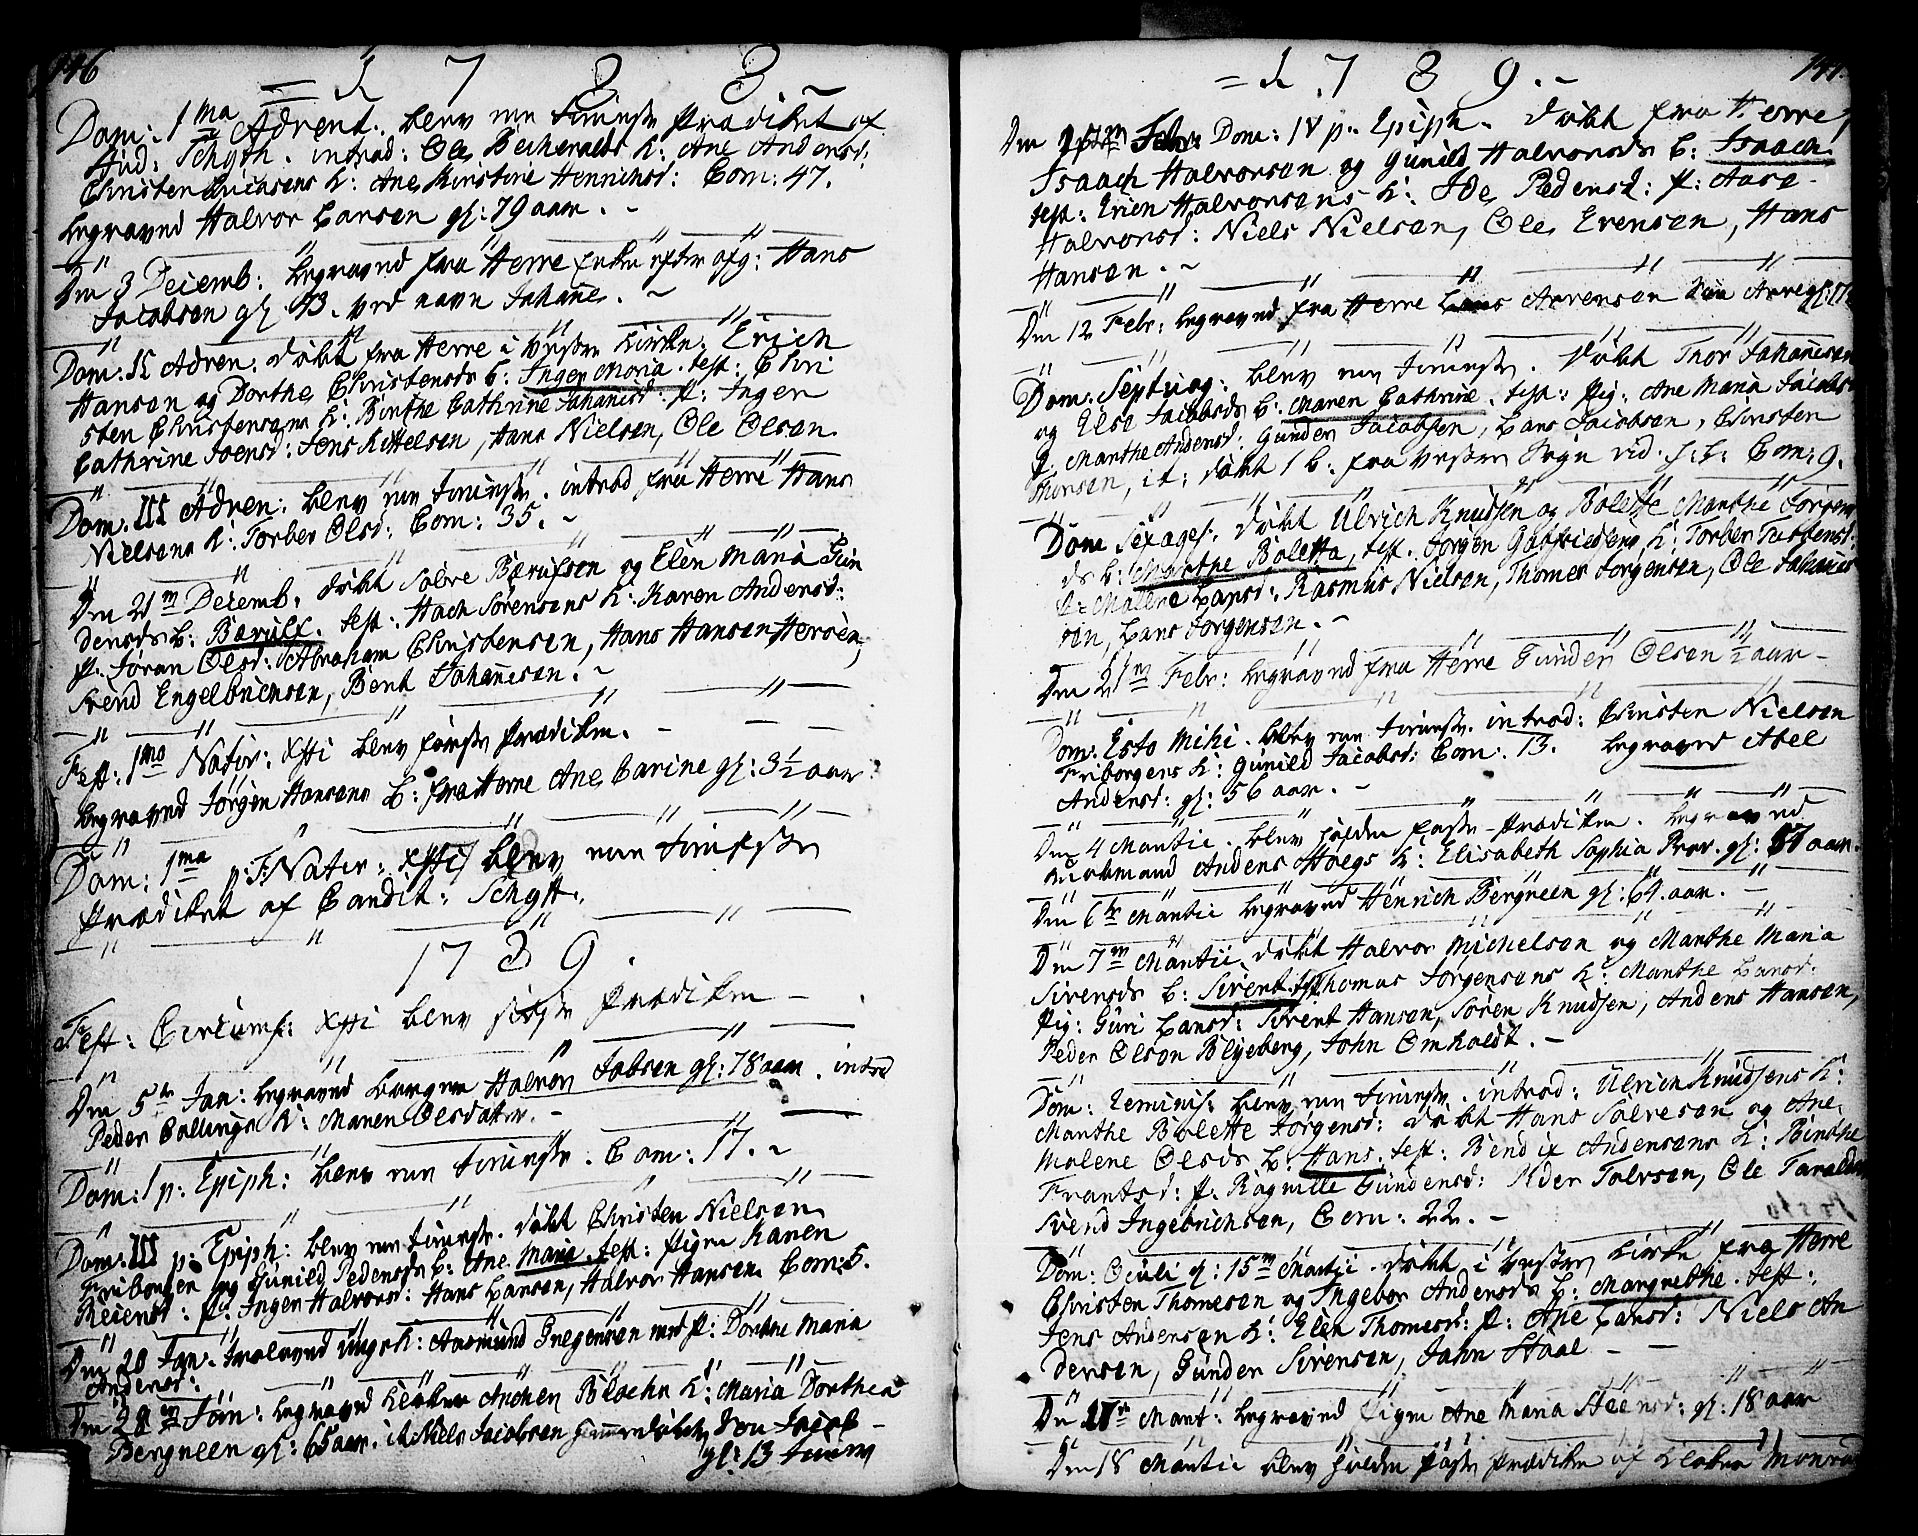 146
= 1 7 8 8 ~
Dom: 1ma Advent. blev een Prædiket af
Stud: Schyth. introd: Ole Bechevalds K: Ane Andersd:
Christen Ericksens K: Ane Kirstine Henrichsd: Com: 47.
begraved Halvor Larsen gl: 79 aar. ~
Den 3 Decemb: begraved fra Herre Hans
Jacobsen gl. 43. ved navn Johane. ~
Dom: II Adven: døbt fra Herre i Kirke. Erich
Hansen og Dorthe Christensds b: Inger Maria. test: Chri
sten Christensens K: Birthe Cathrine Johanisd: p: Inger
Cathrine Joensd: Jens Kittelsen, Hans Nielsen, Ole Olsen
Dom: III Adven: blev introd fra Herre Hans
Nielsens K: Torber Olsd: Com: 35. ~
Den 21m Decemb. døbt Solve Børufsen og Elen Maria Gun
densds b: Børulf. test: Hach Sørensens K: Karen Andersd:
p: Joran Olsd: Abraham Christensen, Hans Hansen Hersen,
Svend Engelbrichsen, Bent Johanesen. ~
Fest: 1mo Nativ: Xsti blev Prædiken.
begraved Jörgen Hansens b: fra Herre Ane Carine gl: 3½ aar
Dom: 1ma p: F: Nativ: Xsti blev
Prædiket af Candit: Schytt.
1789.
Fest: Circums: Xsti blev Prædiken –
Den 5te Jan: begraved Halvor Jobsen gl: 78 aar. introd
Peder Ballings K: Maren Olsdater. –
Dom: 1 p: Epiph: blev Com: 17. ~
Dom: III p: Epiph: blev døbt Christen Nielsen
Friborgen og Gunild Pedersds b: Ane Maria. test: Pigen Karen
Reiersd: p: Inger Halvorsd: Hans Larsen, Halvor Hansen. Com: 5.
Den 20 Jan. Troloved ungk: Aasmund Gregersen med p: Dorthe Maria
Andersd:
Den 28m Jan: begraved Klocker Anchen Bloch K: Maria Dorthea
Bergneen gl: 65 aar. it Niels Jacobsen hiemmedøbte Son Jacob –
gl: 13
147.
= 1 7 8 9. ~
Den Febr: Dom: IV p: Epiph. døbt fra Herre
Isaach Halvorsen og Gunild Halvorsds b: Isaach.
test: Erich Halvorsens K: Ide Pedersd: p: Aase
Halvorsd: Niels Nielsen, Ole Evensen, Hans
Hansen. ~
Den 12 Febr: begraved fra Herre Arvensen Arve gl:
Dom: Septuag: blev døbt Thor Johanesen
og Else Jacobsds b: Maren Cathrine. test: Pig: Ane Maria Jacobsd
p. Marthe Andersd: Gunder Jacobsen, Lars Jacobsen, Christen
Thorsen, it: døbt 1 b: fra Sogn vid: Com: 9.
Dom Sexages: døbt Ulrich Knudsen og Bolette Marthe Jörgens
ds b: Marthe Boletta, test. Jörgen Gotfriedsens K: Torber Torbensd:
p: Malene Larsd: Rasmus Nielsen, Thomes Jorgensen, Ole Johanes
sen, Lars Jorgensen. ~
Den 21m Febr: begraved fra Herre Gunder Olsen ½ aar –
Dom: Esto Mihi. blev introd: Christen Nielsen
Friborgens K: Gunild Jacobsd: Com: 13. begraved Abel
Andersd: gl: 56 aar. –
Den 4 Martii. blev holden faste-Prædiken. begraved
Anders Hoegs K: Elisabeth Sophia Prov. gl: 57 aar.
Den 6te Martii begraved Henrich Bergneen gl: 64. aar. –
Den 7m Martii døbt Halvor Michelsen og Marthe Maria
Sirensds b: Sivert. test Thomas Jorgensens K: Marthe Larsd:
Pig: Guri Larsd: Sivert Hansen, Sören Knudsen, Anders Hansen,
Peder Olsen Blyeberg, John Omholdt. –
Dom: Reminis: blev introd: Ulrich Knudsens K:
Marthe Bolette Jorgensd: døbt Hans Solvesen og Ane
Malene Olsds b: Hans. test: Bendix Andersens K: Birthe
Frantsd: p: Ragnille Gundersd: Peder Tolvsen, Ole Taralds
Svend Ingebrichsen, Com: 22. –
Dom: Oculi d: 15m Martii. døbt i Kirke fra Herre
Christen Thomesen og Ingebor Andersds b: Margrethe. test:
Jens Andersen K: Elen Thomesd: p: Ane Larsd: Niels An
dersen, Gunder Sirensen, John Staal – –
Den 17m Mart: begraved Pigen Ane Maria Steensd: gl: 18 aar
Den 18 Martii blev holden faste Prædiken af Klocker Monrad